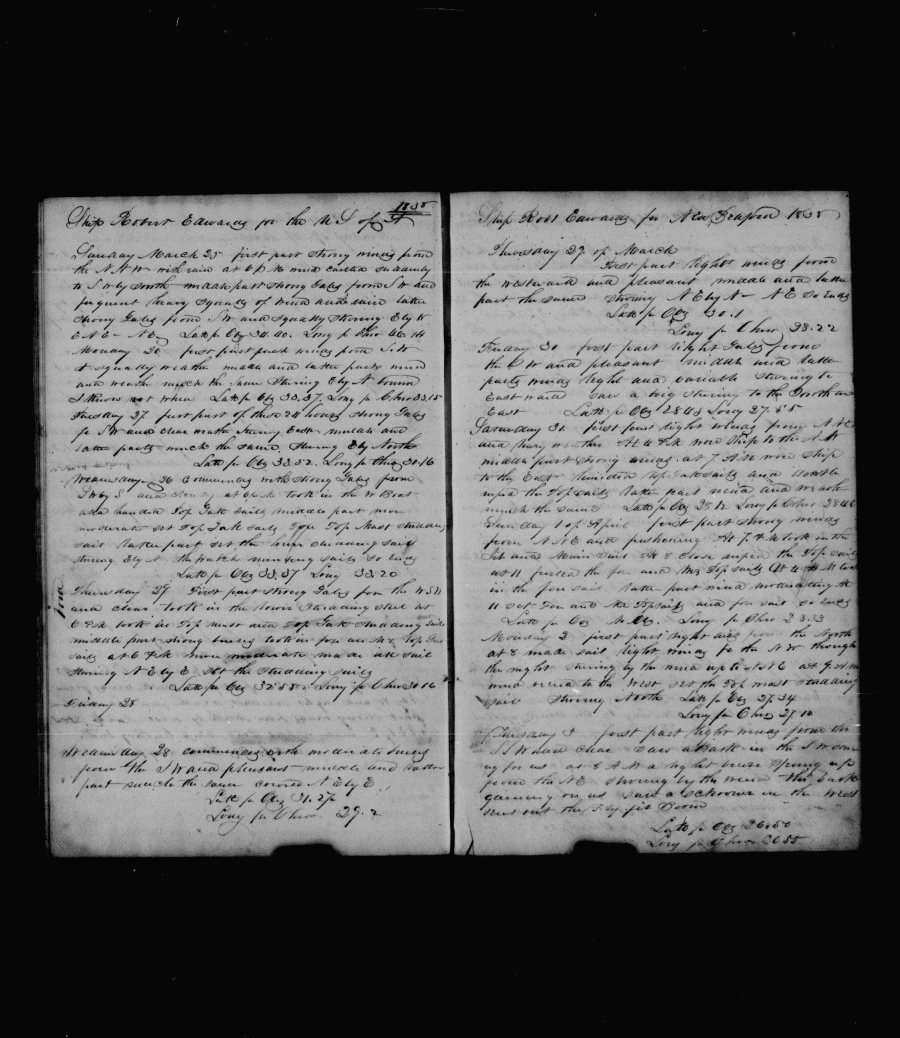 1838
Ship Robert Edwards for the U S of A
Sunday March 25 first part strong winds from
the N N W with rain at 6 P M wind canted suddenly
to S W by South middle part strong Gales from S W and
frequent heavy squalls of wind and rain latter
strong Gales from S W and squally steering E by N
E N E - N E Latt p Obs 34.40. Long p Chro
Monday 26 first part fresh winds from S W
& squally weather middle and latter parts wind
and weather much the same Steering E by N bound
I know not when Latt p Obs 33.37. Long p Chro 33.15
Tuesday 27 first part of these 24 hours strong Gales
fr S W and clear weather Steering East middle and
latter parts much the same Steering E by North
Latt p Obs 33.52. Long p Chro 30.16
Wednesday 26 Commences with strong Gales from
S W by S and at 6 P M took in the W Boat
and handed Top Galt sails middle part more
moderate set Top Galt sails Fore Top Mast studding
sail latter part set the lower studding sail
steering E by N the watch mending sails so Ends
Latt p Obs 33.37 Long 33.20
Thursday 27 First part strong Gales from the W S W
and clear took in the lower Studding sail at
6 P M took in Top Mast and Top Galt Studding Sails
middle part strong breeses took in fore and Mz Top Galt
sails at 6 more moderate made all sail
steering N E by E Set the studding sails
Latt p Obs 32.58 - Long p Chro 30.16
Friday 28
Wednesday 28 commences with moderate breeses
from the S W and pleasant middle and latter
part much the same course N E by E
Latt p Obs 31.27
Long p Chro 29.2
Ship Robt Edwards for New Bedford 1838
Thursday 29 of March
First part light winds from
the westward and pleasant middle and latter
part the same steering N E by N - N E So Ends
Latt p Obs 30.1
Long p Chro 28.22
Friday 30 first part light Gales from
the and pleasant middle and latter
parts winds light and variable steering to
Eastward saw a brig steering to the South and
East Latt p Obs 28.48 Long 27.55
Saturday 31 first part light winds from N N E
and heavy weather At 4 P M wore Ship to the N W
middle part strong winds at 7 A M wore Ship
to the East top Galt sails and double
the Top sails latter part wind and weather
much the same Latt p Obs 28.12 Long p Chro 28.46
Sunday 1 of April first part strong winds
from N N E and freshening At 7 P M took in the
Jib and Main Sail At 8 close reefed the Top sails
at 11 furled the fore and Mz Top sails At 4 A M took
in the fore sail latter part wind moderating At
11 set Fore and Mz Top sails and fore sail so Ends
Latt p Obs No Obs. Long p Chro 28.33
Monday 2 first part light airs from the North
at 8 made sail light winds fr the N W through
the night steering by the wind up to N N E at 9 A M
wind to the West set the Top mast studding
sail Steering North Latt p Obs 27.34
Long p Chro 27.10
Tuesday 3 first part light winds from the
S S W and clear saw a Bark in the S W com
ing for us at 8 A M a light breese spring up
from the N E steering by the wind the bark
gaining on us saw a schooner in the West
sent out the Flying jib Boom
Latt p Obs 26.50
Long p Chro 26.55